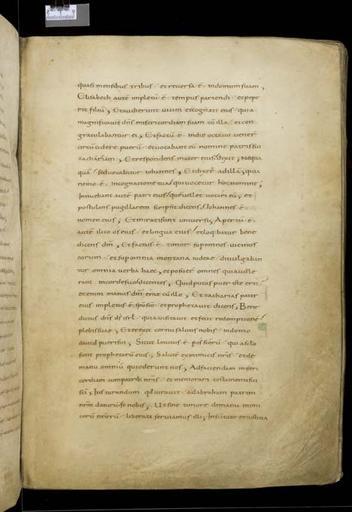 quasi mensibus tribus et reversa ē in domum suam,
Elisabeth autē impletū ē tempus pariendi et pepe
rit filiū, Et audierunt vicini et cognati eius quia
magnificavit dn̄s misericordiam suam cū illa et con
gratulabantur ei, Et factū ē in die octavo venerͭ
circūcidere puerū et vocabant eū nomine patris sui
zachariam, Et respondens mater eius dixit, Nequa
quā sed vocabitur iohannes, Et dixerͭ ad illā, quia
nemo ē in cognatione tua qui vocetur hoc nomine,
Innuebant autē patri eius quē vellet vocari eū, et
postulans pugillarem scripsit dicens, Iohannes ē
nomen eius, Et mirati sunt universi, Apertū ē
autē ilico os eius et lingua eius et loquebatur bene
dicens dm̄, Et factus ē timor super omnes vicinos
eorum et super omnia montana iudeae divulgabun
tur omnia verba haec, et posuerͭ omnes qui audie
rant in corde suo dicentes, Quid putas puer iste erit
et enim manus dn̄i erat cū illo, Et zacharias pater
eius impletus ē sp̄u sc̄o et prophetavit dicens, Bene
dictus dn̄s ds̄ isrl̄ quia visitavit et fecit redemptionē
plebis suae, Et erexit cornu salutis nobis in domo
david pueri sui, Sicut locutus ē per os sc̄orū qui a sclo
sunt prophetarū eius, Salutē ex inimicis nr̄is et de
manu omniū qui oderunt nos, Ad faciendam miseri
cordiam cum patrib; nr̄is et memorari testamenti sui
sc̄i, Ius iurandum qđ iuravit ad abraham patrem
nr̄m daturū se nobis, Ut sine timore de manu inimi
corū nr̄orū liberati serviamus illi, In sanctitate